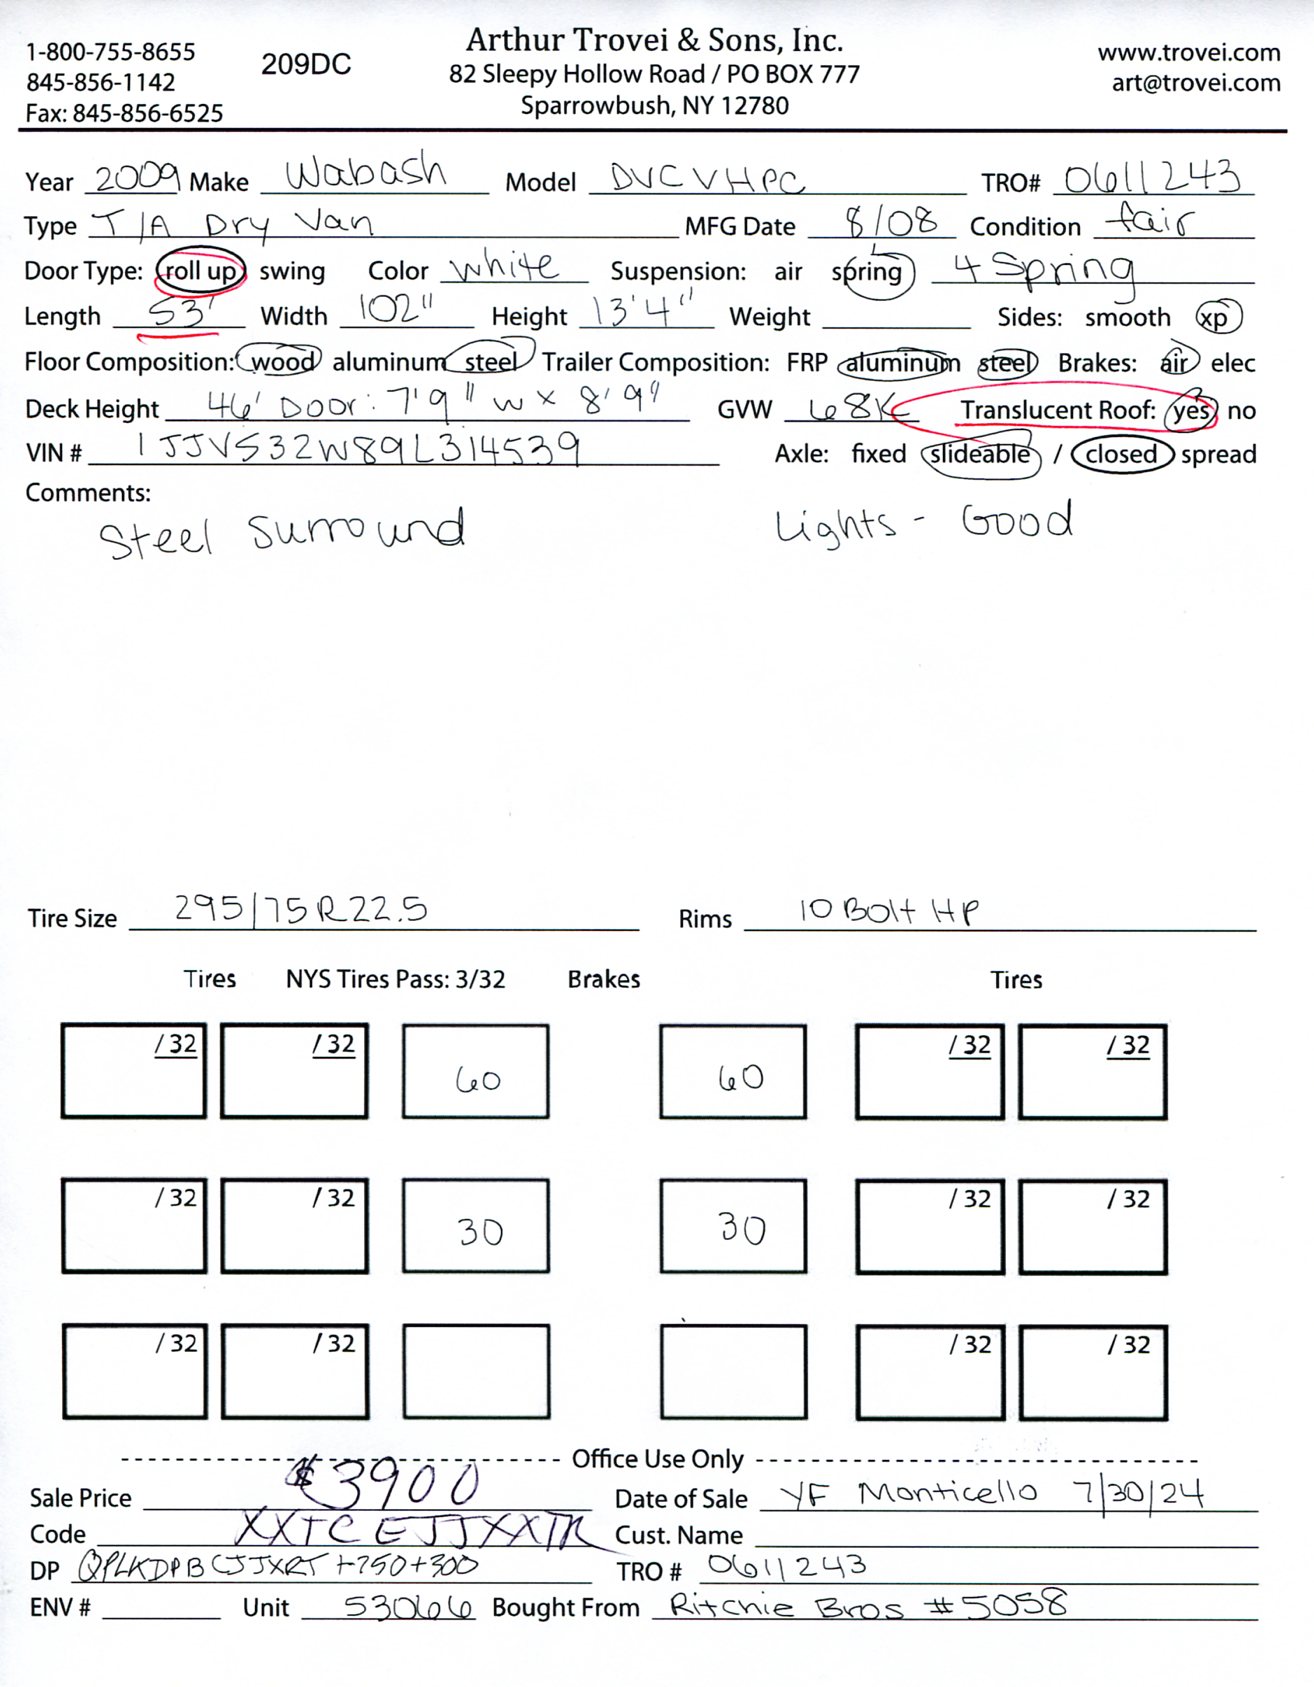 1-800-755-8655
845-856-1142
Fax: 845-856-6525
209DC
Arthur Trovei & Sons, Inc.
82 Sleepy Hollow Road / PO BOX 777
Sparrowbush, NY 12780
www.trovei.com
art@trovei.com
Year 2009 Make Wabash Model DVCVHPC TRO# 0611243
Type T/A Dry Van MFG Date 8/08 Condition fair
Door Type: roll up swing Color white Suspension: air spring 4 Spring
Length 53' Width 102" Height 13'4" Weight Sides: smooth xp
Floor Composition: wood aluminum steel Trailer Composition: FRP aluminum steel Brakes: air elec
Deck Height 46' Door: 7'9" w x 8'9" GVW 68K Translucent Roof: yes no
VIN # 1JJV532W89L314539 Axle: fixed slideable / closed spread
Comments:
Steel Surround Lights - Good
Tire Size 295/75R22.5 Rims 10 Bolt HP
Tires NYS Tires Pass: 3/32 Brakes Tires
/ 32 / 32 60 60 / 32 / 32
/ 32 / 32 30 30 / 32 / 32
/ 32 / 32 / 32 / 32
Office Use Only
Sale Price $3900 Date of Sale YF Monticello 7/30/24
Code Cust. Name
DP +750+300 TRO # 0611243
ENV # Unit 53066 Bought From Ritchie Bros #5058